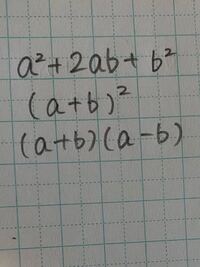 a² + 2ab + b²
(a+b)²
(a+b)(a-b)